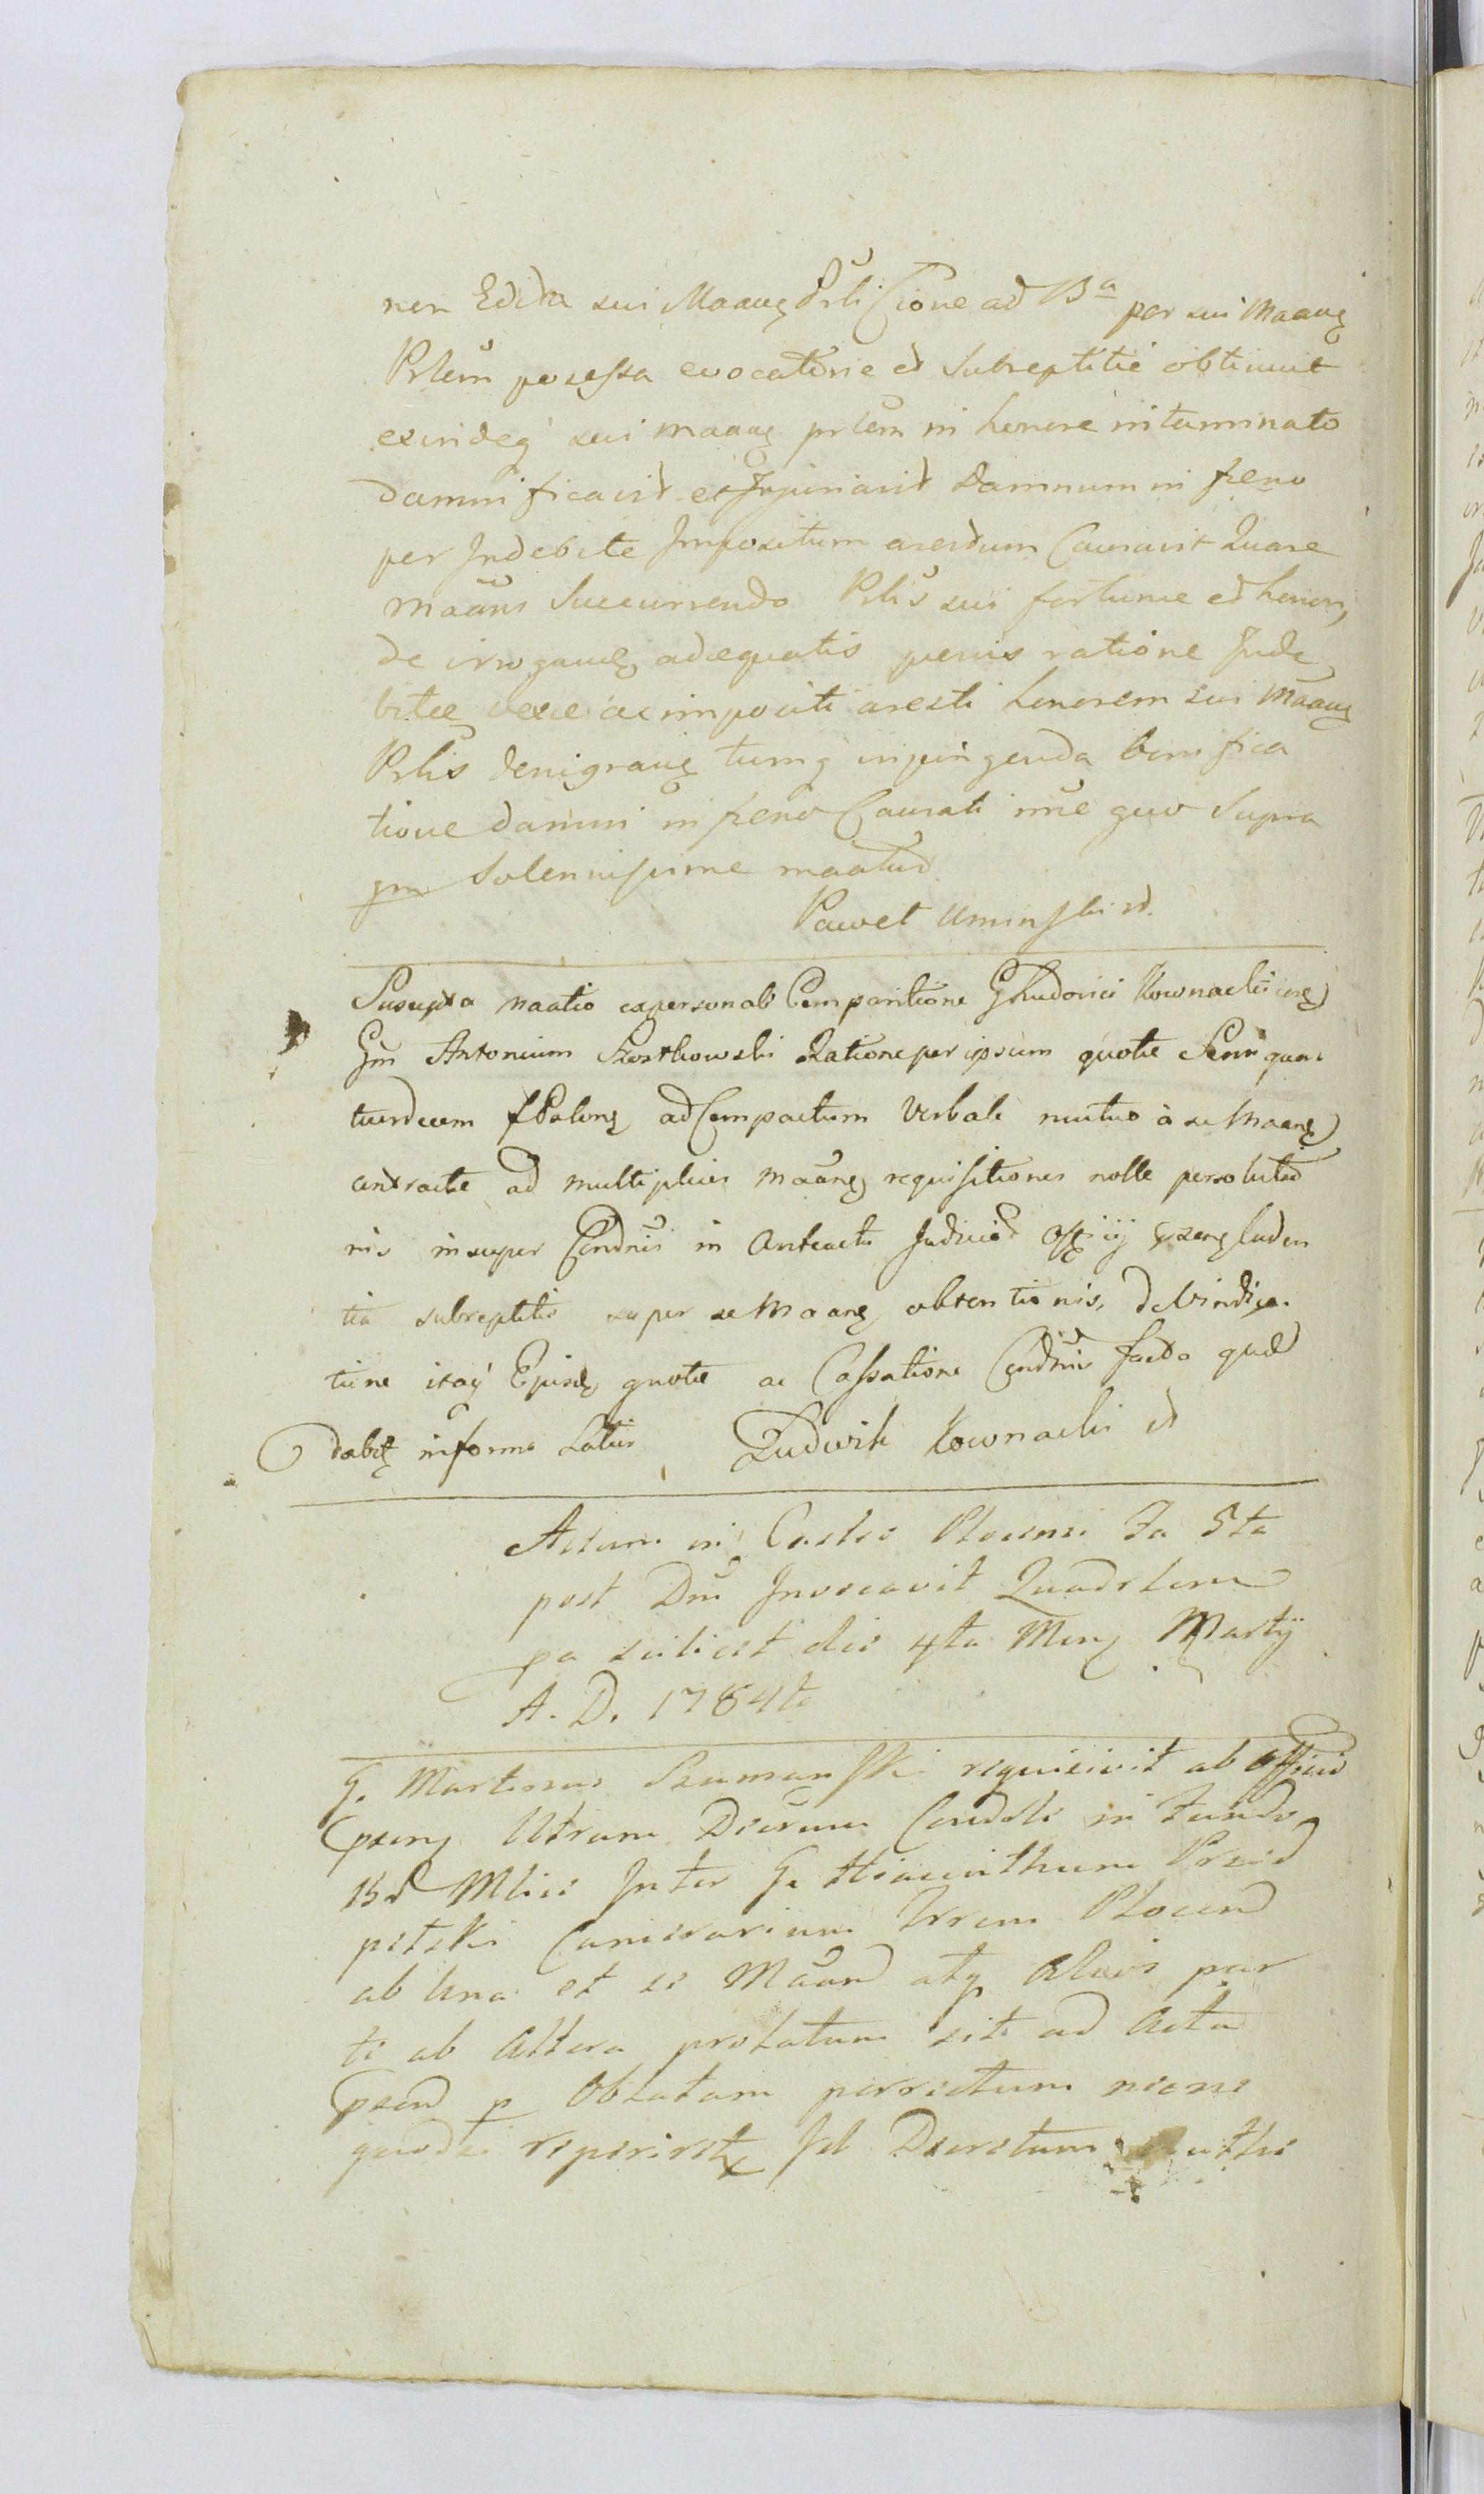 non Edita sui Maang Prli Cione ad Ba per sui Maang
Prlem possessa evocatorie et Subreptitie obtinuit
exindeq sui maang prlem in honore intaminato
damnificavit et Injuriavit damnum in feno
per Indebite Impositum arestum Causavit Quare
Maans Succurrendo Prlis sui fortunae et honori,
de irrogang adaequatis penis ratione Inde
bitae vexae ac impositi aresti honorem sui Maang
Prlis denigrang tumq inpingenda bonifica
tione damni in feno Causati nne quo Supra
gm Solennissime maatus
Paweł Uminski id.
Suscepta naatio ex personali Comparitione G Ludovici Kownacki
Gm Antonium Szostkowski Ratione per ipsum quotae Senn quan
tuordecem fPolong ad Compactum Verbale mutuo a se Maang
contractae ad multiplices Maang requisitiones nolle persolutio
nis insuper Condnis in Anteacti Judicio Offcii pseng luden
tia subreptitie super se Maang obtentionis, de Vindica
tione itaq Ejusdq quotae ac Cassatione Condnis facta qued
dabit in forma Latiori Ludwik Kownacki id
Actum in Castro Plocensi Fa 5ta
post Dni Invocavit Quadrlem
pa scilicet die 4ta Meng Martij
A. D. 1784to
G. Martinus Szumanski requisivit ab Officio
pseng Utrum Decretum Condsli in Fundo
Bd Mlice Inter G. Hiacinthum Przed
petski Camerarium Trrem Plocens
ab Una et se Maand atq Alios par
te ab Altera prolatum sit ad Acta
psend p Oblatam porrectum necne
quod si reperiretur Id Decretum